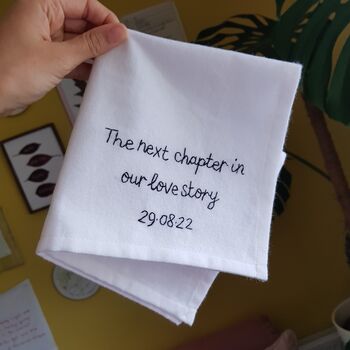 The next chapter in
our love story
29·08·22